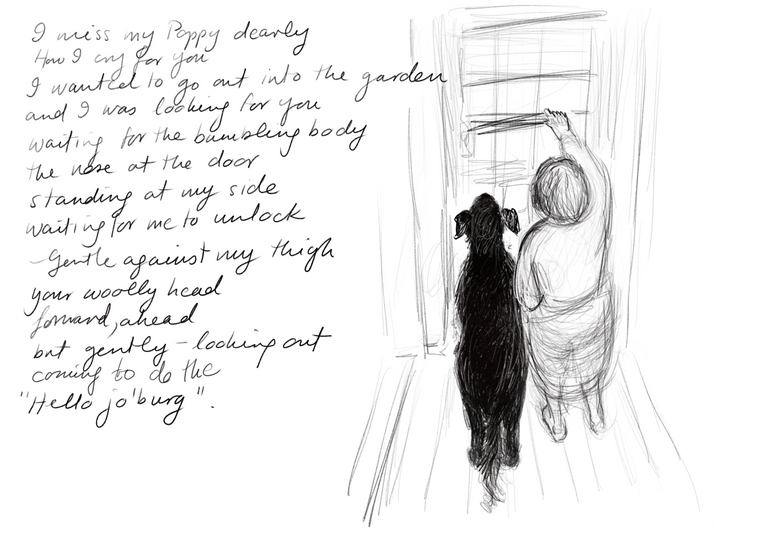 I miss my Poppy dearly
How I cry for you
I wanted to go out into the garden
and I was looking for you
waiting for the bumbling body
the nose at the door
standing at my side
waiting for me to unlock
- Gentle against my thigh
your woolly head
forward, ahead
but gently - looking out
coming to do the
"Hello jo'burg".